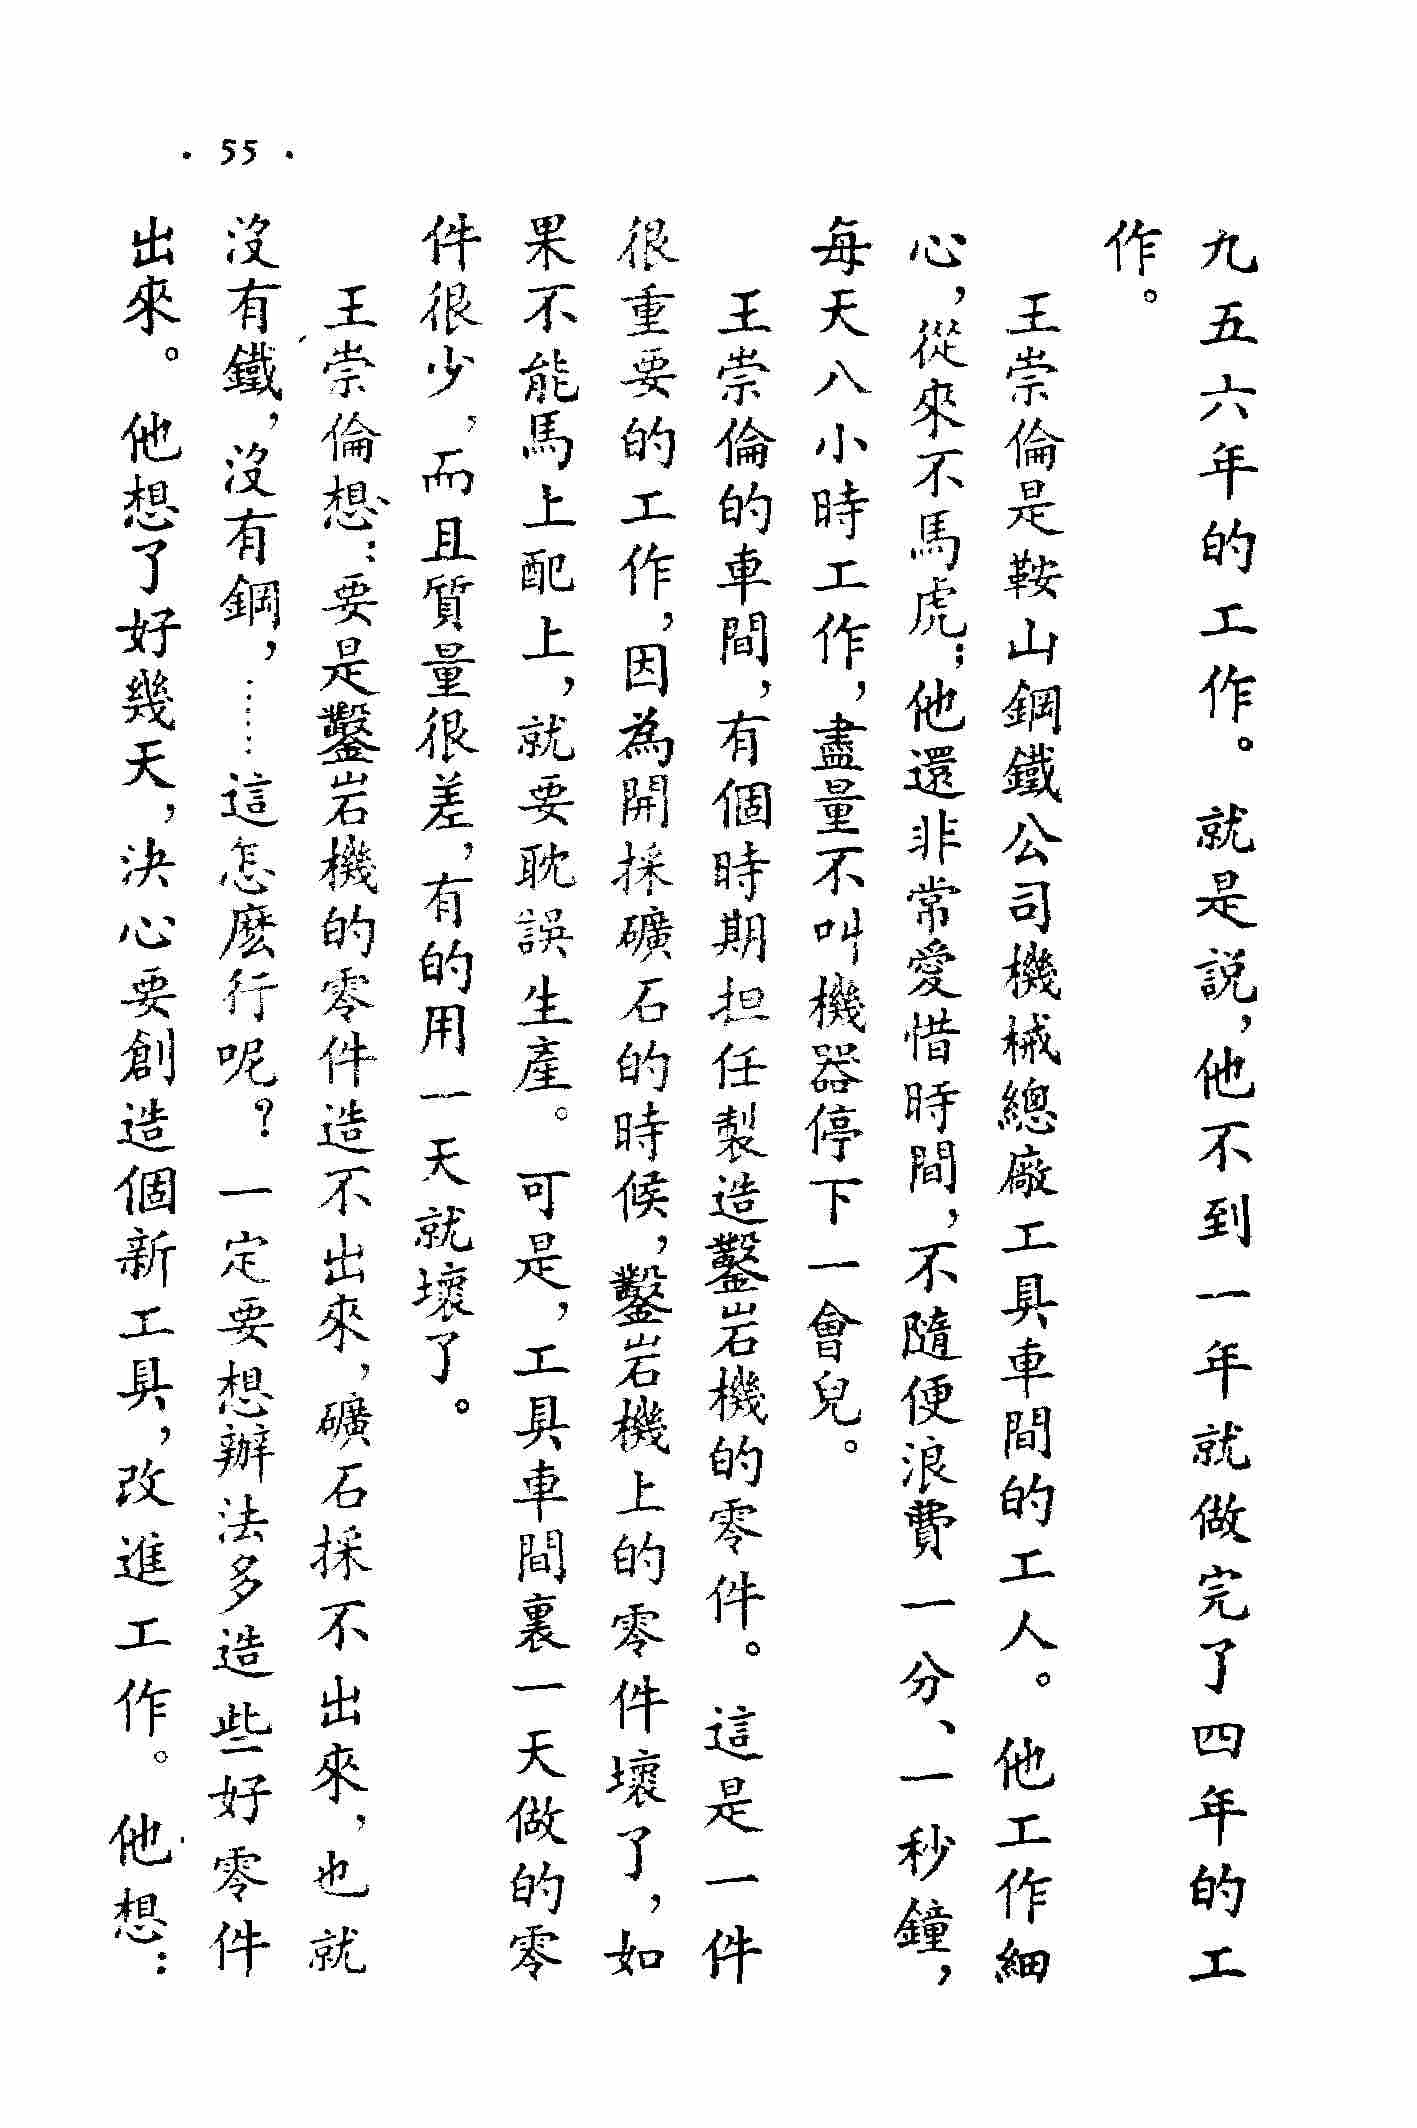 · 55 ·
九五六年的工作。就是説，他不到一年就做完了四年的工
作。
王崇倫是鞍山鋼鐵公司機械總廠工具車間的工人。他工作細
心，從來不馬虎；他還非常愛惜時間，不隨便浪費一分、一秒鐘，
每天八小時工作，盡量不叫機器停下一會兒。
王崇倫的車間，有個時期担任製造鑿岩機的零件。這是一件
很重要的工作，因為開採礦石的時候，鑿岩機上的零件壞了，如
果不能馬上配上，就要耽誤生產。可是，工具車間裏一天做的零
件很少，而且質量很差，有的用一天就壞了。
王崇倫想：要是鑿岩機的零件造不出來，礦石採不出來，也就
沒有鐵，沒有鋼，……這怎麽行呢？一定要想辦法多造些好零件
出來。他想了好幾天，決心要創造個新工具，改進工作。他想：